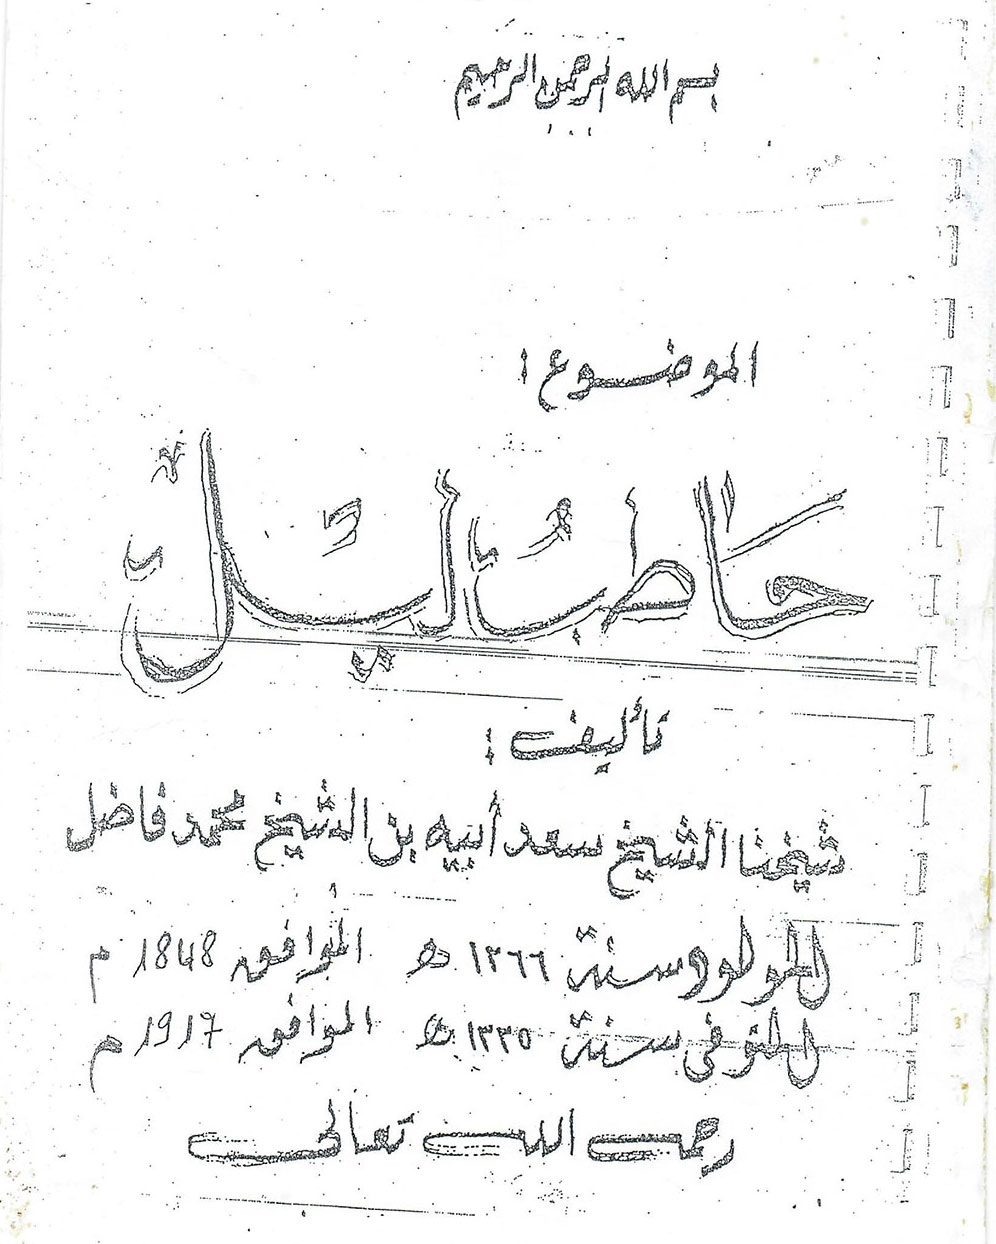 بسم الله الرحمن الرحيم
الموضوع :
حَاطِبُ لَيْلٍ
تأليف :
شيخنا الشيخ سعد أبيه بن الشيخ محمد فاضل
المولود سنة ١٢٦٦ هـ الموافق 1848 م
المتوفى سنة ١٣٣٥ هـ الموافق 1917 م
رحمه الله تعالى